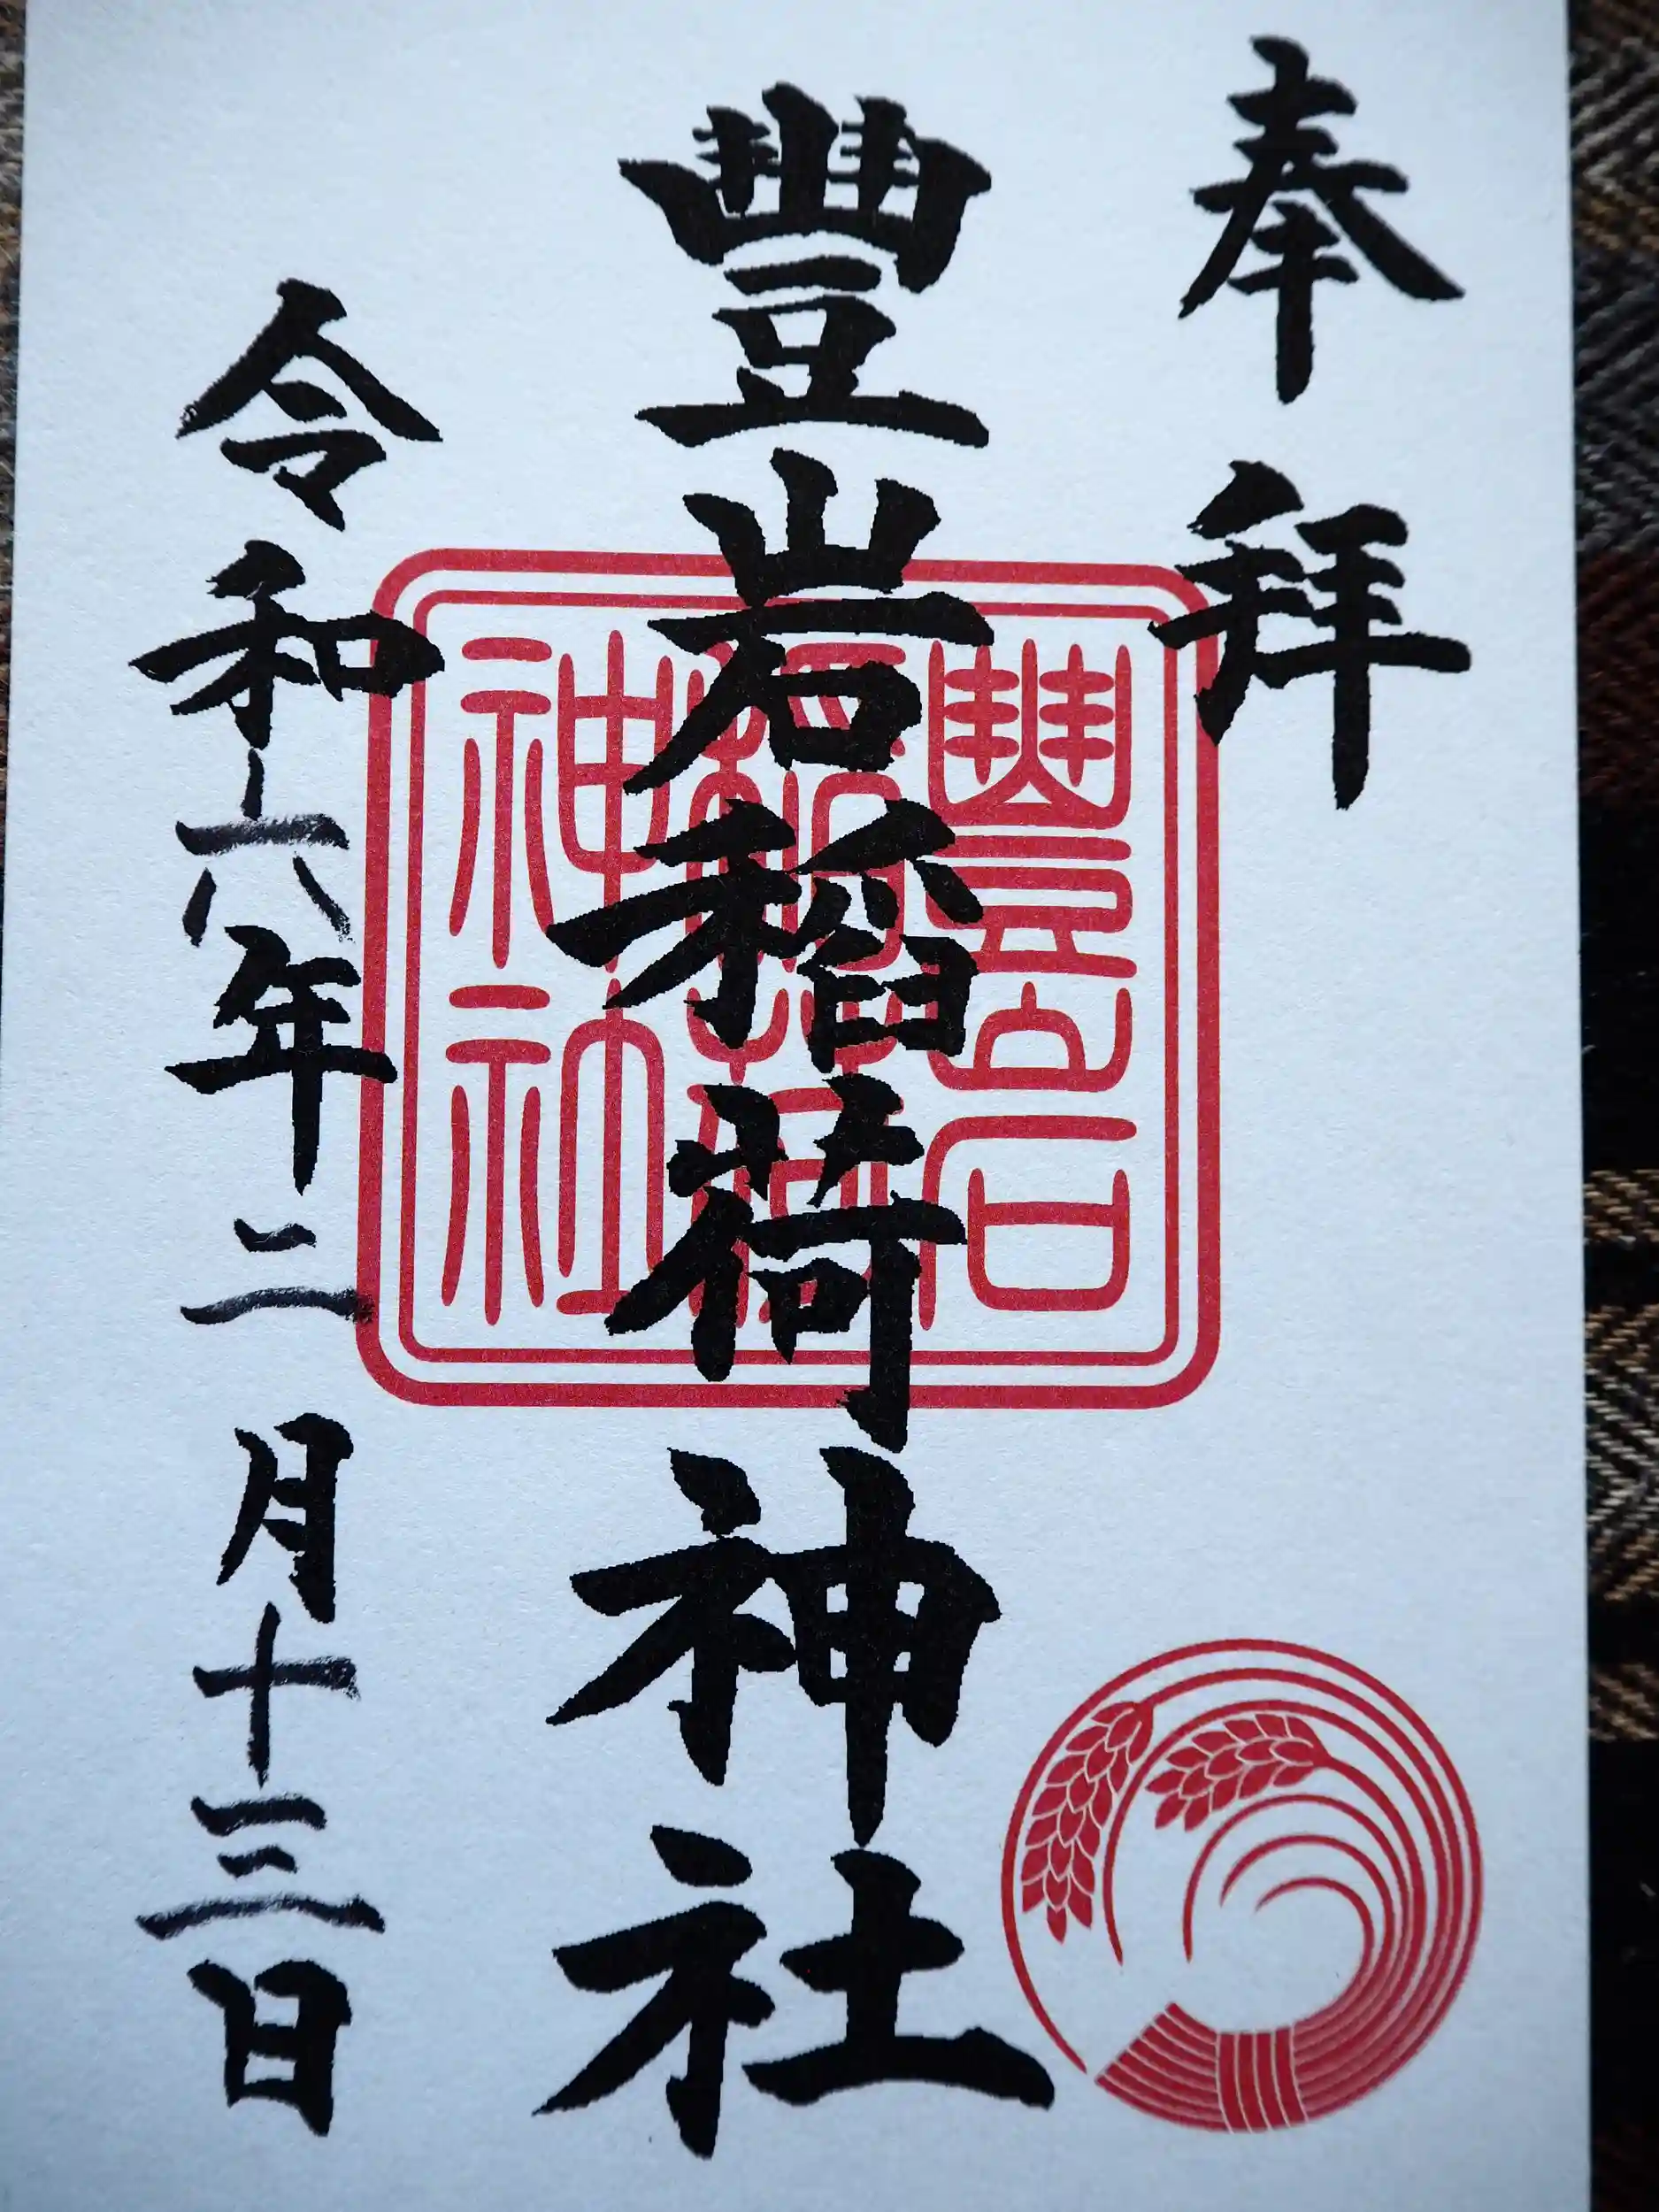 奉拝
豐岩稻荷神社
豐岩
稲荷
神社
令和六年二月十三日